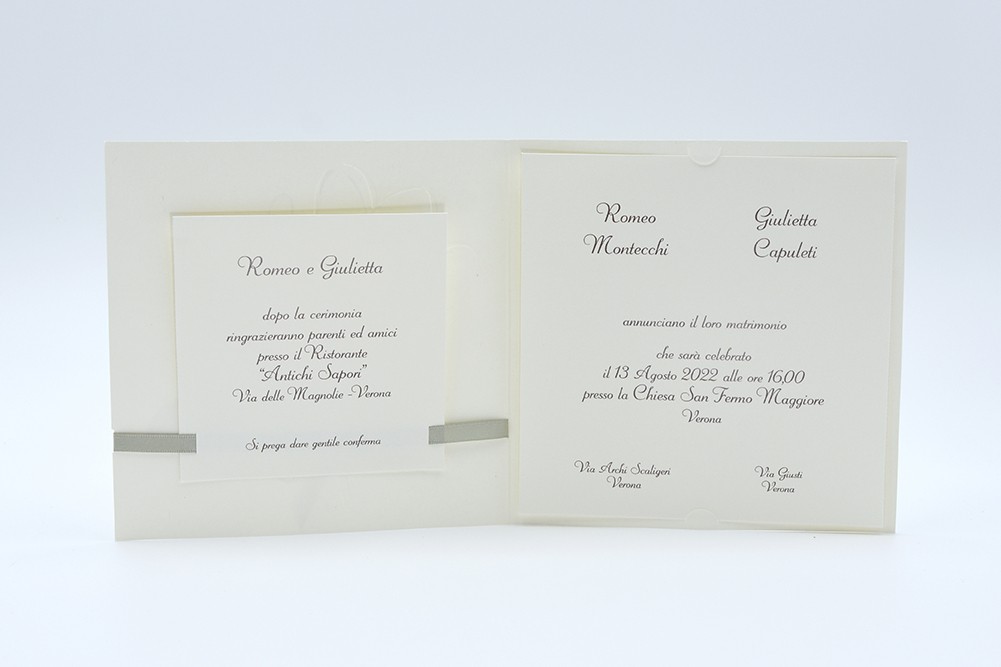 Romeo e Giulietta
dopo la cerimonia
ringrazieranno parenti ed amici
presso il Ristorante
“Antichi Sapori”
Via delle Magnolie - Verona
Si prega dare gentile conferma
Romeo
Montecchi
Giulietta
Capuleti
annunciano il loro matrimonio
che sarà celebrato
il 13 Agosto 2022 alle ore 16,00
presso la Chiesa San Fermo Maggiore
Verona
Via Archi Scaligeri
Verona
Via Giusti
Verona